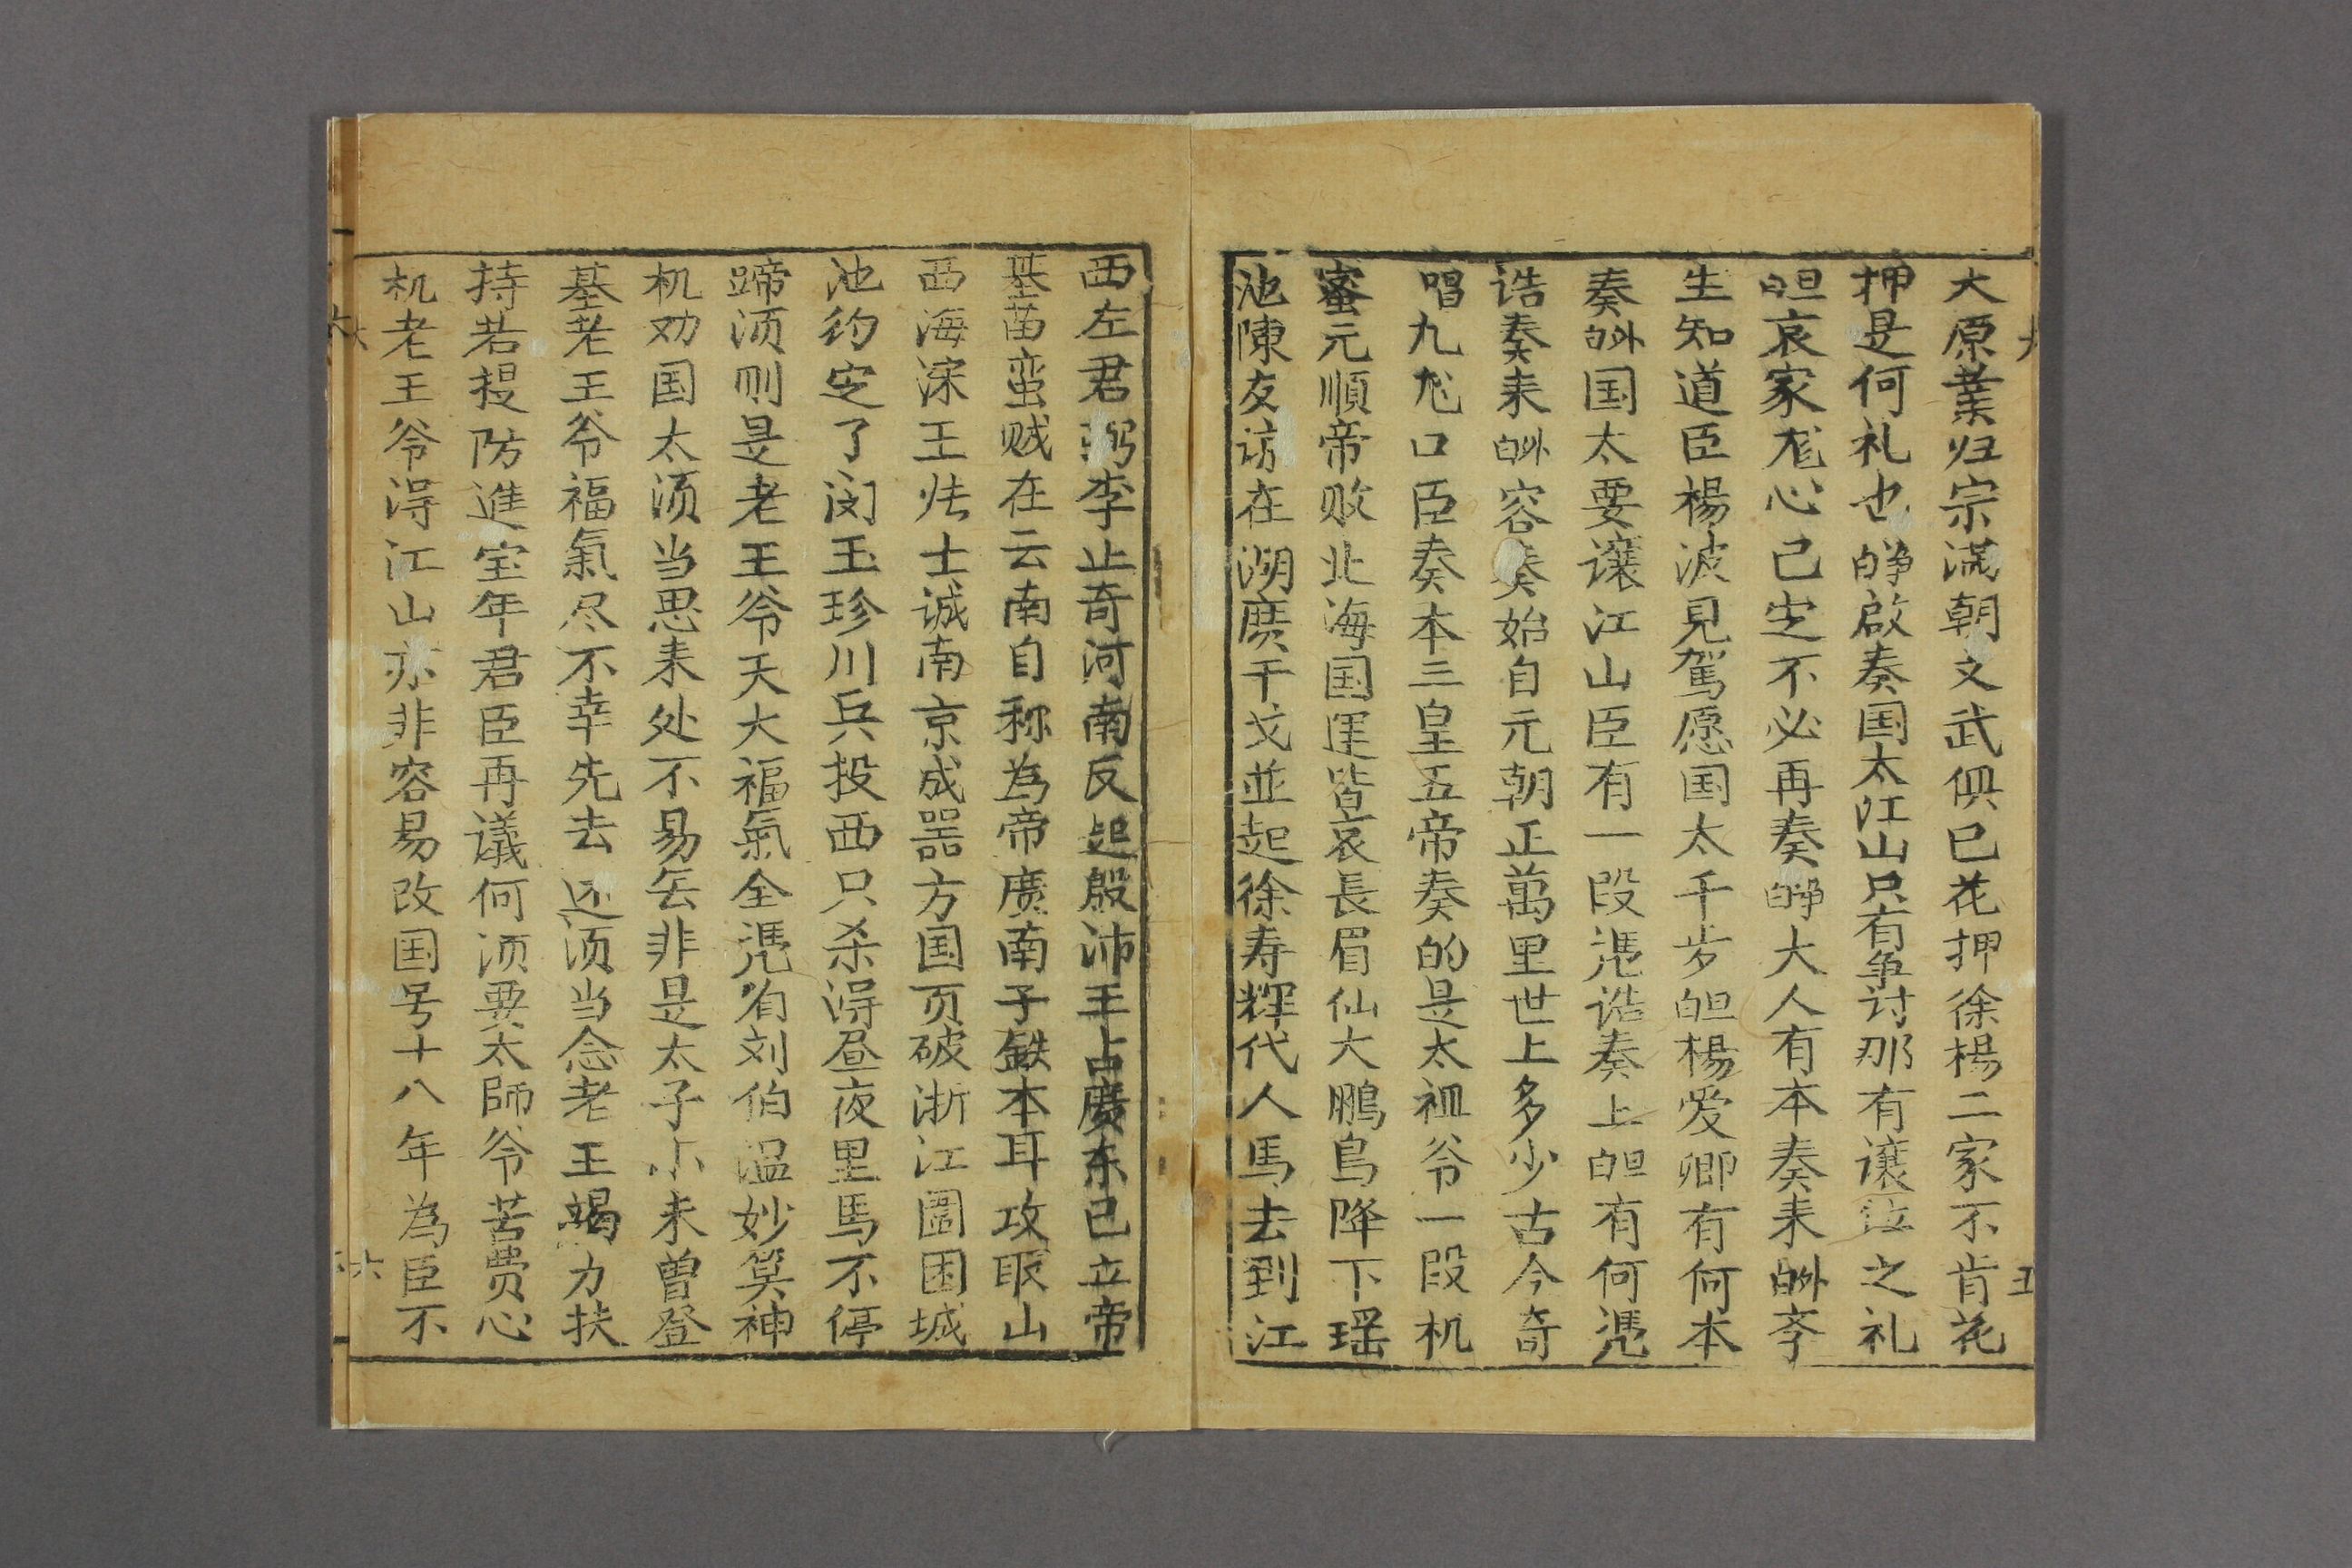 大原業归宗满朝文武俱已花押徐楊二家不肯花
押是何礼也白净啟奏国太江山只有争讨那有讓位之礼
白旦哀家尨心已定不必再奏白净大人有本奏来白外李
生知道臣楊波見駕愿国太千岁白旦楊爱卿有何本
奏白外国太要讓江山臣有一段凴诰奏上白旦有何凴
诰奏来白外容奏始自元朝正萬里世上多少古今奇
唱九尨口臣奏本三皇五帝奏的是太祖爷一段机
蜜元順帝败北海国運皆衰長眉仙大鵬鳥降下瑶
池陳友谅在湖廣干戈並起徐寿輝代人馬去到江
西左君弼李止奇河南反起殷沛王占廣东已立帝
基苗蛮贼在云南自称為帝廣南子鉄本耳攻取山
西海深王张士诚南京成噐方国页破浙江圕困城
池约定了闵玉珍川兵投西只杀淂昼夜里馬不停
蹄须则是老王爷天大福氣全凴有刘伯温妙筭神
机劝国太须当思来处不易岳非是太子小未曾登
基老王爷福氣尽不幸先去还须当念老王竭力扶
持若提防進宝年君臣再議何须要太師爷苦费心
机老王爷淂江山亦非容易改国号十八年為臣不
五
六